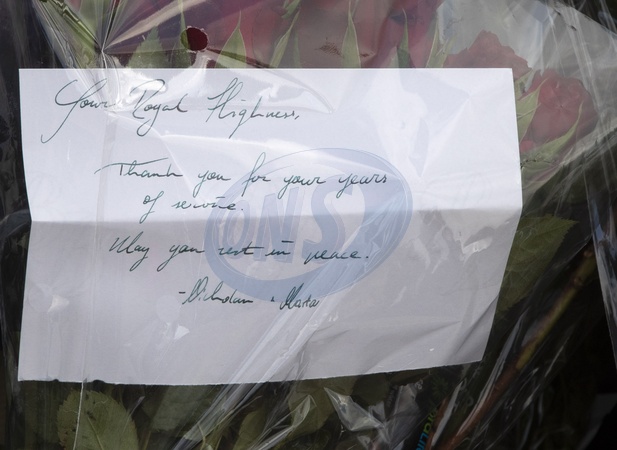 Your Royal Highness,
Thank you for your years
of service.
May you rest in peace.
& Marta